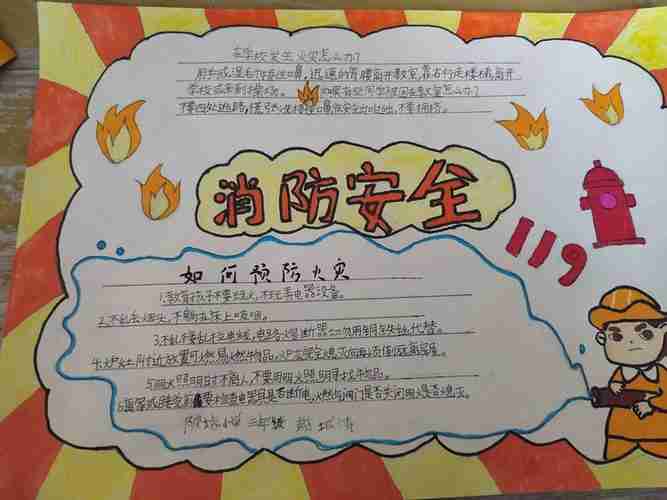 在学校发生火灾怎么办?
用手或湿毛巾捂住口鼻,迅速的弯腰离开教室,靠右行走楼梯离开
学校或来到操场。
不要四处逃跑,
不要拥挤。
消防安全
119
如何预防火灾
1.教育孩子不要玩火,不玩弄电器设备。
2.不乱丢烟头,不躺在床上吸烟。
3.不乱接乱拉电线,电路熔断器切勿用铜、铁丝代替。
4.炉灶附近放置可燃易燃物品,
5.明火照明时不离人,不要用明火照明寻找物品。
6.离家或睡觉前要检查电器具是否断电,燃气阀门是否关闭,明火是否熄灭。
小学 三年级